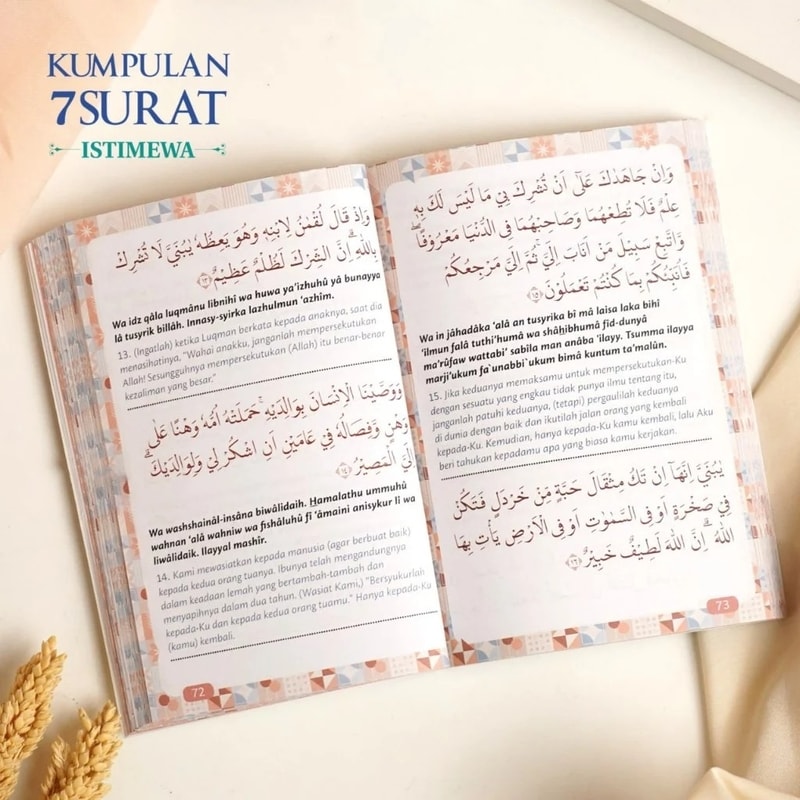 KUMPULAN
7SURAT
ISTIMEWA
وَاِذْ قَالَ لُقْمٰنُ لِابْنِهٖ وَهُوَ يَعِظُهٗ يٰبُنَيَّ لَا تُشْرِكْ
بِاللّٰهِ ۗاِنَّ الشِّرْكَ لَظُلْمٌ عَظِيْمٌ ﴿١٣﴾
Wa idz qâla luqmânu libnihî wa huwa ya'izhuhû yâ bunayya
lâ tusyrik billâh. Innasy-syirka lazhulmun 'azhîm.
13. (Ingatlah) ketika Luqman berkata kepada anaknya, saat dia
menasihatinya, "Wahai anakku, janganlah mempersekutukan
Allah! Sesungguhnya mempersekutukan (Allah) itu benar-benar
kezaliman yang besar."
وَوَصَّيْنَا الْاِنْسَانَ بِوَالِدَيْهِۚ حَمَلَتْهُ اُمُّهٗ وَهْنًا عَلٰى
وَهْنٍ وَّفِصَالُهٗ فِيْ عَامَيْنِ اَنِ اشْكُرْ لِيْ وَلِوَالِدَيْكَۗ
اِلَيَّ الْمَصِيْرُ ﴿١٤﴾
Wa washshainâl-insâna biwâlidaih. Hamalathu ummuhû
wahnan 'alâ wahniw wa fishâluhû fî 'âmaini anisykur lî wa
liwâlidaik. Ilayyal mashîr.
14. Kami mewasiatkan kepada manusia (agar berbuat baik)
kepada kedua orang tuanya. Ibunya telah mengandungnya
dalam keadaan lemah yang bertambah-tambah dan
menyapihnya dalam dua tahun. (Wasiat Kami,) "Bersyukurlah
kepada-Ku dan kepada kedua orang tuamu." Hanya kepada-Ku
(kamu) kembali.
72
وَاِنْ جَاهَدٰكَ عَلٰٓى اَنْ تُشْرِكَ بِيْ مَا لَيْسَ لَكَ بِهٖ
عِلْمٌ فَلَا تُطِعْهُمَا وَصَاحِبْهُمَا فِى الدُّنْيَا مَعْرُوْفًا ۖ
وَّاتَّبِعْ سَبِيْلَ مَنْ اَنَابَ اِلَيَّۚ ثُمَّ اِلَيَّ مَرْجِعُكُمْ
فَاُنَبِّئُكُمْ بِمَا كُنْتُمْ تَعْمَلُوْنَ ﴿١٥﴾
Wa in jâhadâka 'alâ an tusyrika bî mâ laisa laka bihî
'ilmun falâ tuthi'humâ wa shâhibhumâ fid-dunyâ
ma'rûfaw wattabi' sabila man anâba 'ilayy. Tsumma ilayya
marji'ukum fa`unabbi`ukum bimâ kuntum ta'malûn.
15. Jika keduanya memaksamu untuk mempersekutukan-Ku
dengan sesuatu yang engkau tidak punya ilmu tentang itu,
janganlah patuhi keduanya, (tetapi) pergaulilah keduanya
di dunia dengan baik dan ikutilah jalan orang yang kembali
kepada-Ku. Kemudian, hanya kepada-Ku kamu kembali, lalu Aku
beri tahukan kepadamu apa yang biasa kamu kerjakan.
يٰبُنَيَّ اِنَّهَآ اِنْ تَكُ مِثْقَالَ حَبَّةٍ مِّنْ خَرْدَلٍ فَتَكُنْ
فِيْ صَخْرَةٍ اَوْ فِى السَّمٰوٰتِ اَوْ فِى الْاَرْضِ يَأْتِ بِهَا
اللّٰهُ ۗاِنَّ اللّٰهَ لَطِيْفٌ خَبِيْرٌ ﴿١٦﴾
73